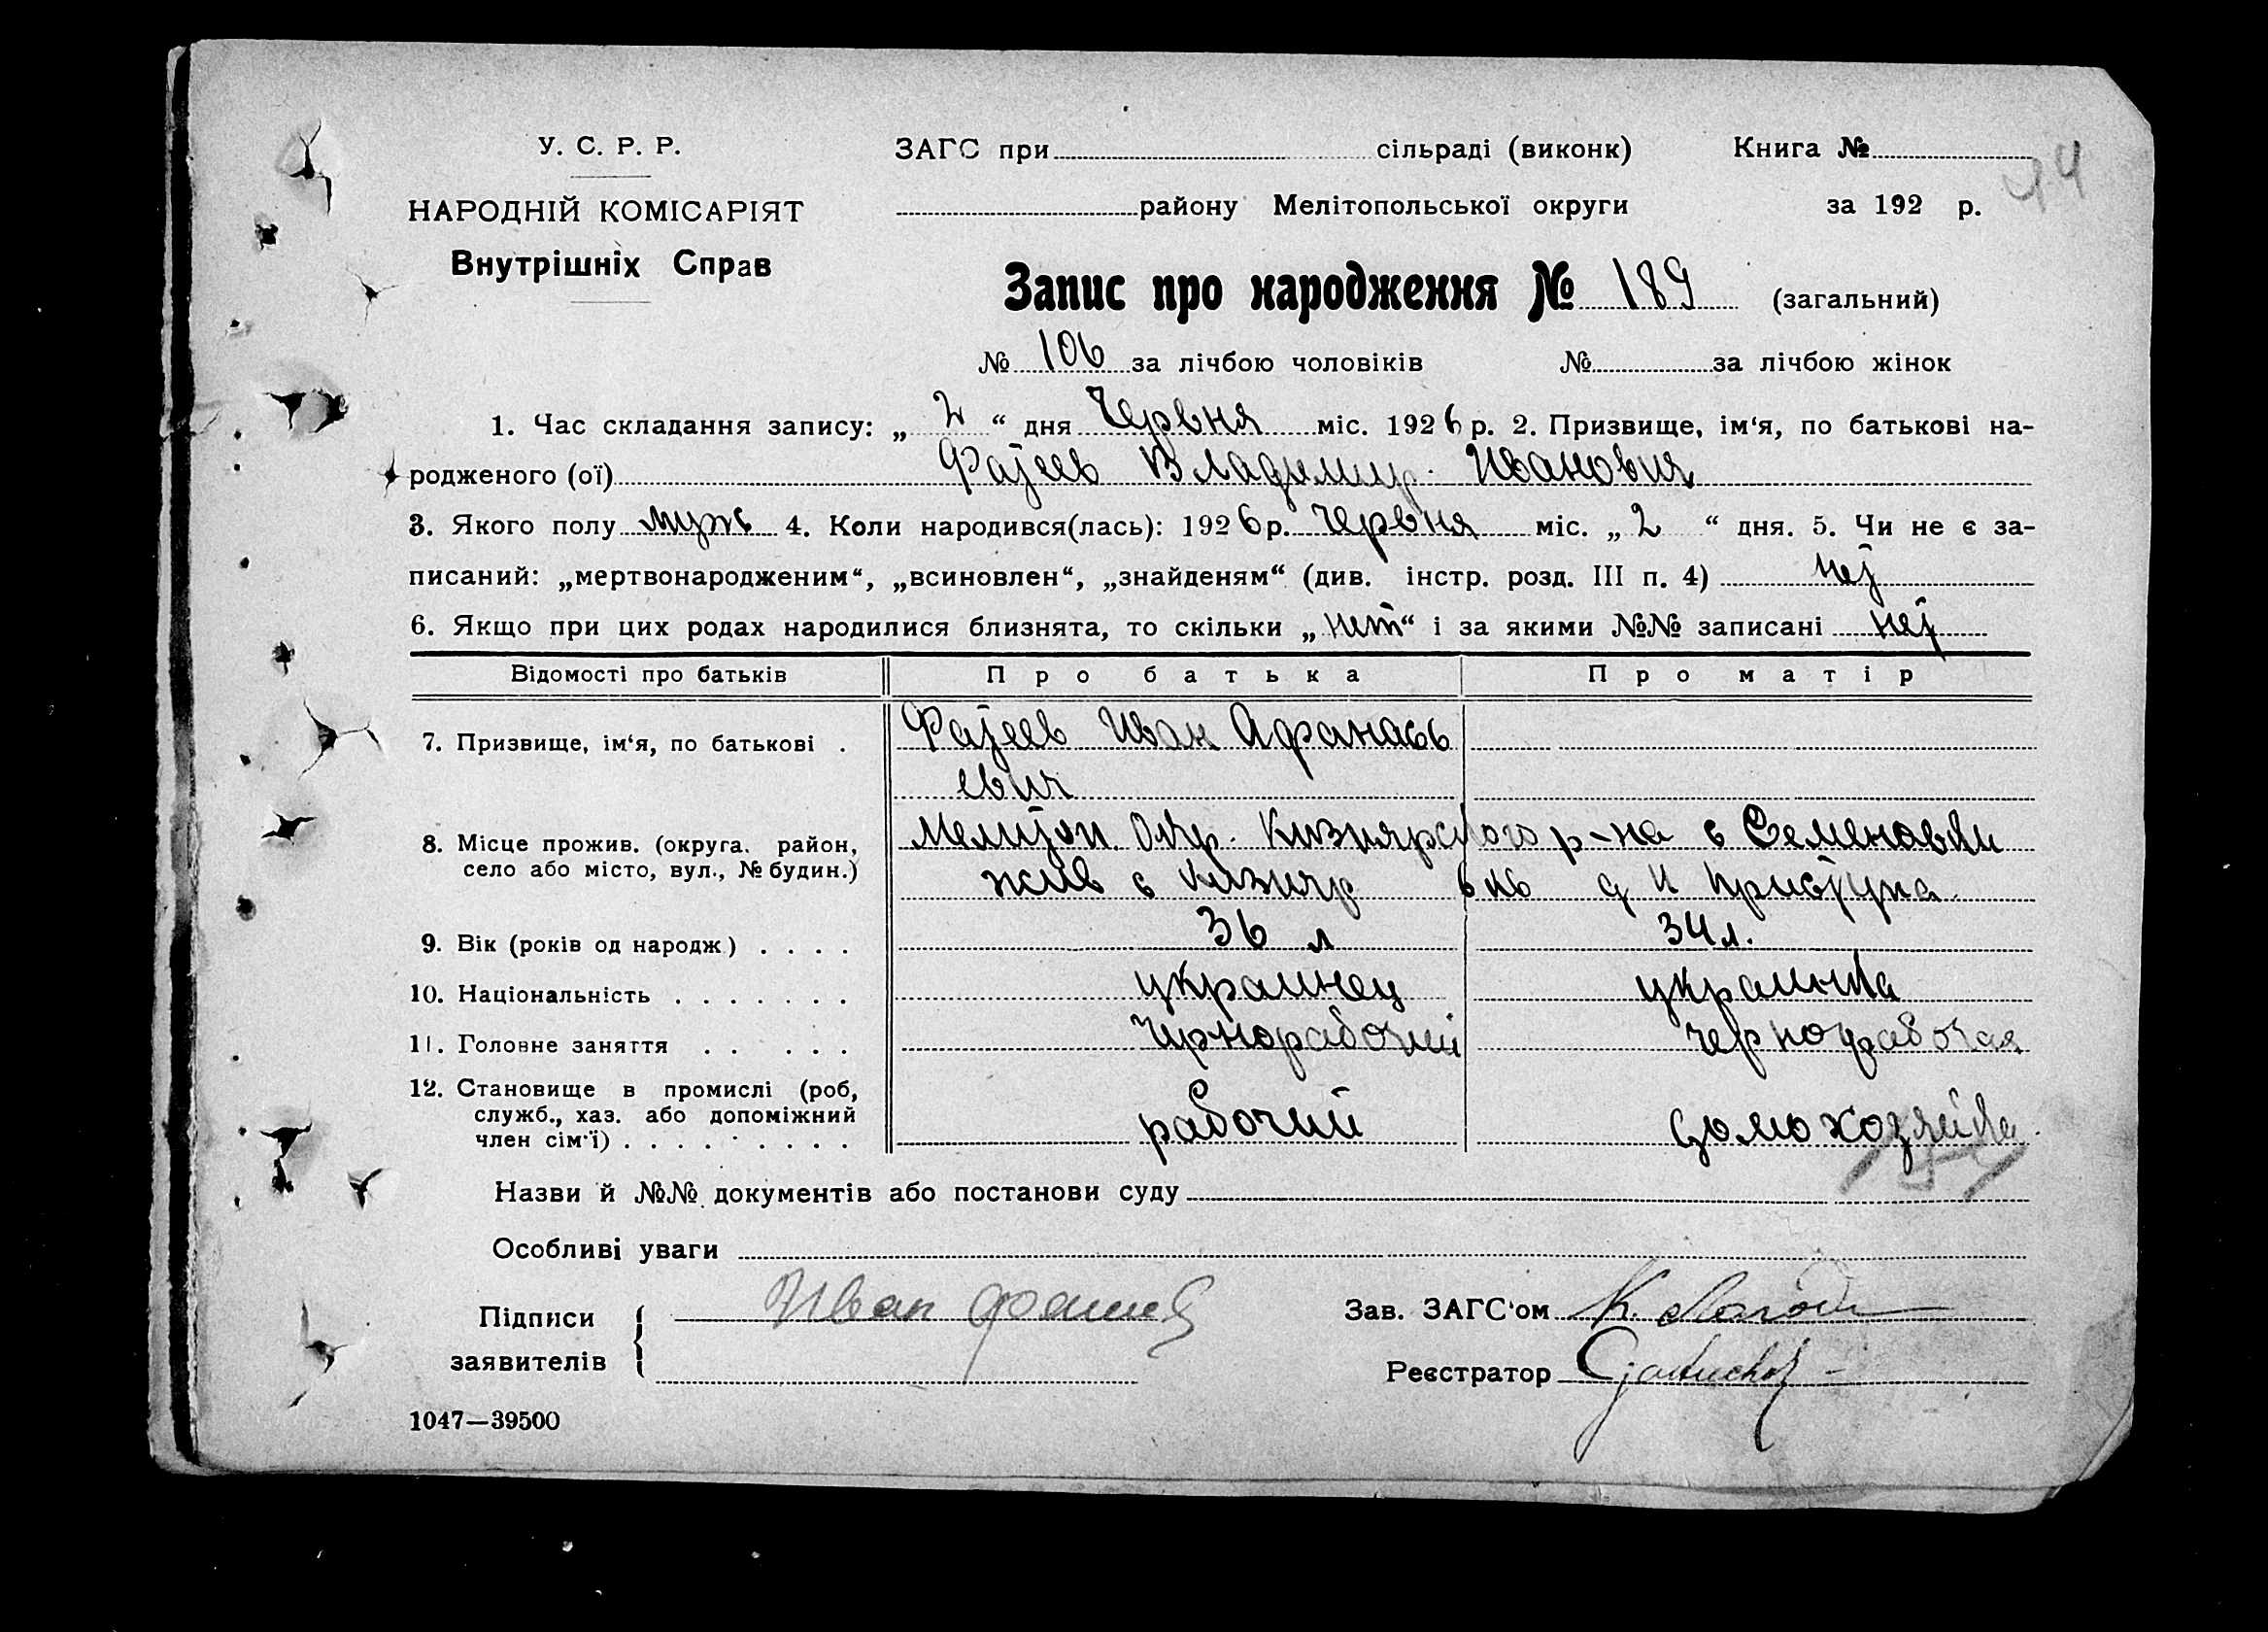 У. С. Р. Р.
ЗАГС при сільраді (виконк) Книга №
44
НАРОДНІЙ КОМІСАРІЯТ
району Мелітопольської округи за 192 р.
Внутрішніх Справ
Запис про народження № 189 (загальний)
№ 106 за лічбою чоловіків № за лічбою жінок
1. Час складання запису: „ 2 “ дня Червня міс. 1926 р. 2. Призвище, ім‘я, по батькові на-
родженого (ої) Фатеев Владимир Иванович
3. Якого полу муж 4. Коли народився(лась): 1926 р. Червня міс. „ 2 “ дня. 5. Чи не є за-
писаний: „мертвонародженим“, „всиновлен“, „знайденям“ (див. інстр. розд. III п. 4) нет
6. Якщо при цих родах народилися близнята, то скільки „нет“ і за якими №№ записані нет
Відомості про батьків Про батька Про матір
7. Призвище, ім‘я, по батькові . Фатеев Иван Афанась
евич
8. Місце прожив. (округа, район, Мелитоп. Окр. Кизиярского р-на с Семеновки
село або місто, вул., № будин.) жив с Кизияр
9. Вік (років од народж.) . . . . 36 л 34 л.
10. Національність . . . . . . . украинец украинка
11. Головне заняття . . . . . чернорабочий чернорабочая
12. Становище в промислі (роб,
служб., хаз. або допоміжний
член сім‘ї) . . . . . . . . . рабочий домохозяйка
Назви й №№ документів або постанови суду
Особливі уваги
Підписи
заявителів
Иван
Зав. ЗАГС‘ом К.
Реєстратор
1047—39500